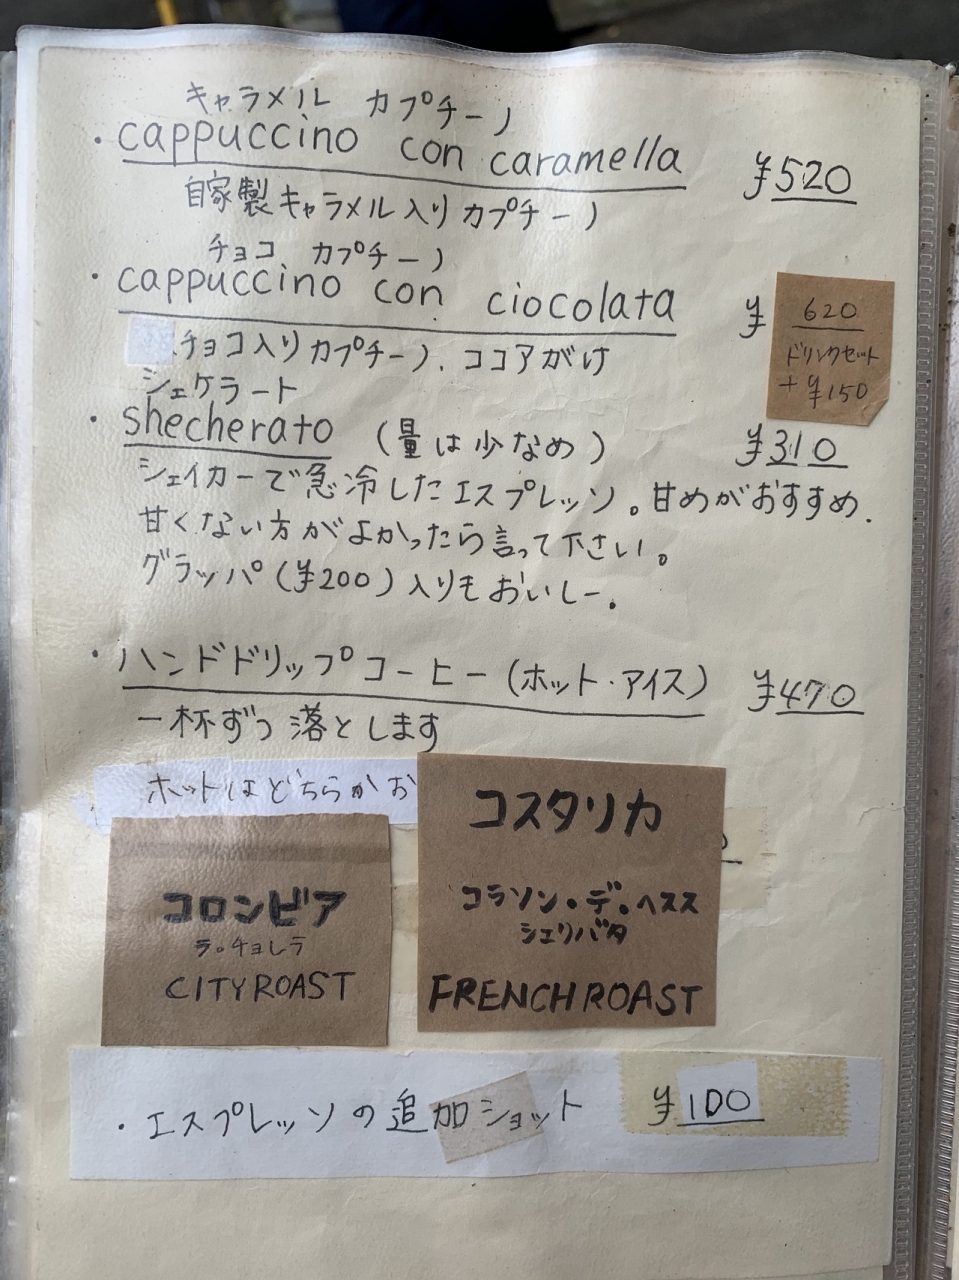 キャラメル カプチーノ
・cappuccino con caramella ¥520
自家製キャラメル入りカプチーノ
チョコ カプチーノ
・cappuccino con ciocolata ¥620
チョコ入りカプチーノ.ココアがけ
ドリンクセット
+¥150
シェケラート
・shecherato (量は少なめ) ¥310
シェイカーで急冷したエスプレッソ。甘めがおすすめ.
甘くない方がよかったら言って下さい。
グラッパ(¥200)入りもおいしー.
・ハンドドリップコーヒー(ホット・アイス) ¥470
一杯ずつ落とします
ホットはどちらかお
コロンビア
ラ・チョレラ
CITY ROAST
コスタリカ
コラソン・デ・ヘスス
シェリバタ
FRENCH ROAST
・エスプレッソの追加ショット ¥100